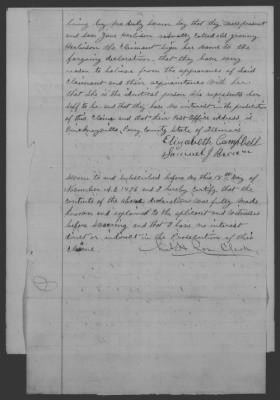 being by me duly sworn say that they were present
and saw Jane Harbison sign her name to the
foregoing declaration, that they have every
reason to believe from the appearance of said
Claimant and their acquaintance with her
that she is the identical person she represents her
self to be and that they have no interest in the prosecution
of this Claim and that their Post Office address is
Pinckneyville, Perry County State of Illinois
Elizabeth Campbell
Samuel J
Sworn to and subscribed before me this 18th day of
November A.D. 1876 and I hereby Certify that the
contents of the above declaration was fully made
known and explained to the applicant and witnesses
before swearing and that I have no interest
direct or indirect in the prosecution of this
Claim.
Clerk